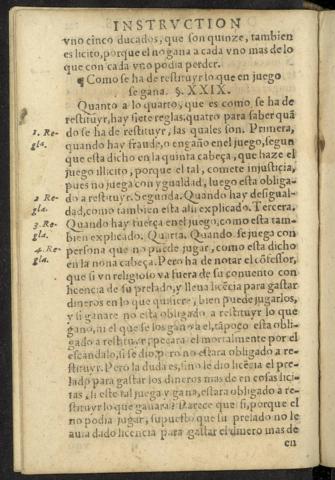 INSTRVCTION
vno cinco ducados, que son quinze, tambien
es licito, porque el no gana a cada vno mas de lo
que con cada vno podia perder.
¶ Como se ha de restituyr lo que en juego
se gana. §. XXIX.
Quanto a lo quarto, que es como se ha de
restituyr, hay siete reglas. quatro para saber quã
1. Re-
gla.
do se ha de restituyr, las quales son. Primera,
quando hay fraude, o engaño en el juego, segun
que esta dicho en la quinta cabeça, que haze el
juego illicito, porque el tal, comete injusticia,
pues no juega con ygualdad, luego esta obliga-
2 Re-
gla.
do a restituyr. Segunda. Quando hay desigual-
dad, como tambien esta alli explicado. Tercera.
3. Re-
gla.
Quando hay fuerça en el juego, como esta tam-
bien explicado. Quarta. Quando se juega con
4. Re-
gla.
persona que no puede jugar, como esta dicho
en la nona cabeça. Pero ha de notar el cõfessor,
que si vn religioso va fuera de su conuento con
licencia de su prelado, y lleua licẽcia para gastar
dineros en lo que quisiere, bien puede jugarlos,
y si ganare no esta obligado a restituyr lo que
gano, ni el que se los gano a el, tãpoco esta obli-
gado a restituyr: pecara el mortalmente por el
escandalo, si se dio, pero no estara obligado a re-
stituyr. Pero la duda es, si no le dio licẽcia el pre-
lado para gastar los dineros mas de en cosas lici-
tas, si este tal juega y gana, estara obligado a re-
stituyr lo que ganara? Parece que si, porque el
no podia jugar, supuesto que su prelado no le
auia dado licencia para gastar el dinero mas de
en